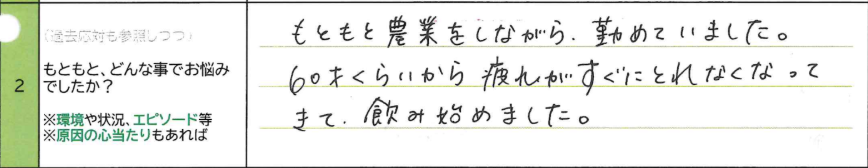 2
(過去応対も参照しつつ)
もともと、どんな事でお悩み
でしたか？
※環境や状況、エピソード等
※原因の心当たりもあれば
もともと農業をしながら、勤めていました。
60才くらいから疲れがすぐにとれなくなって
きて、飲み始めました。